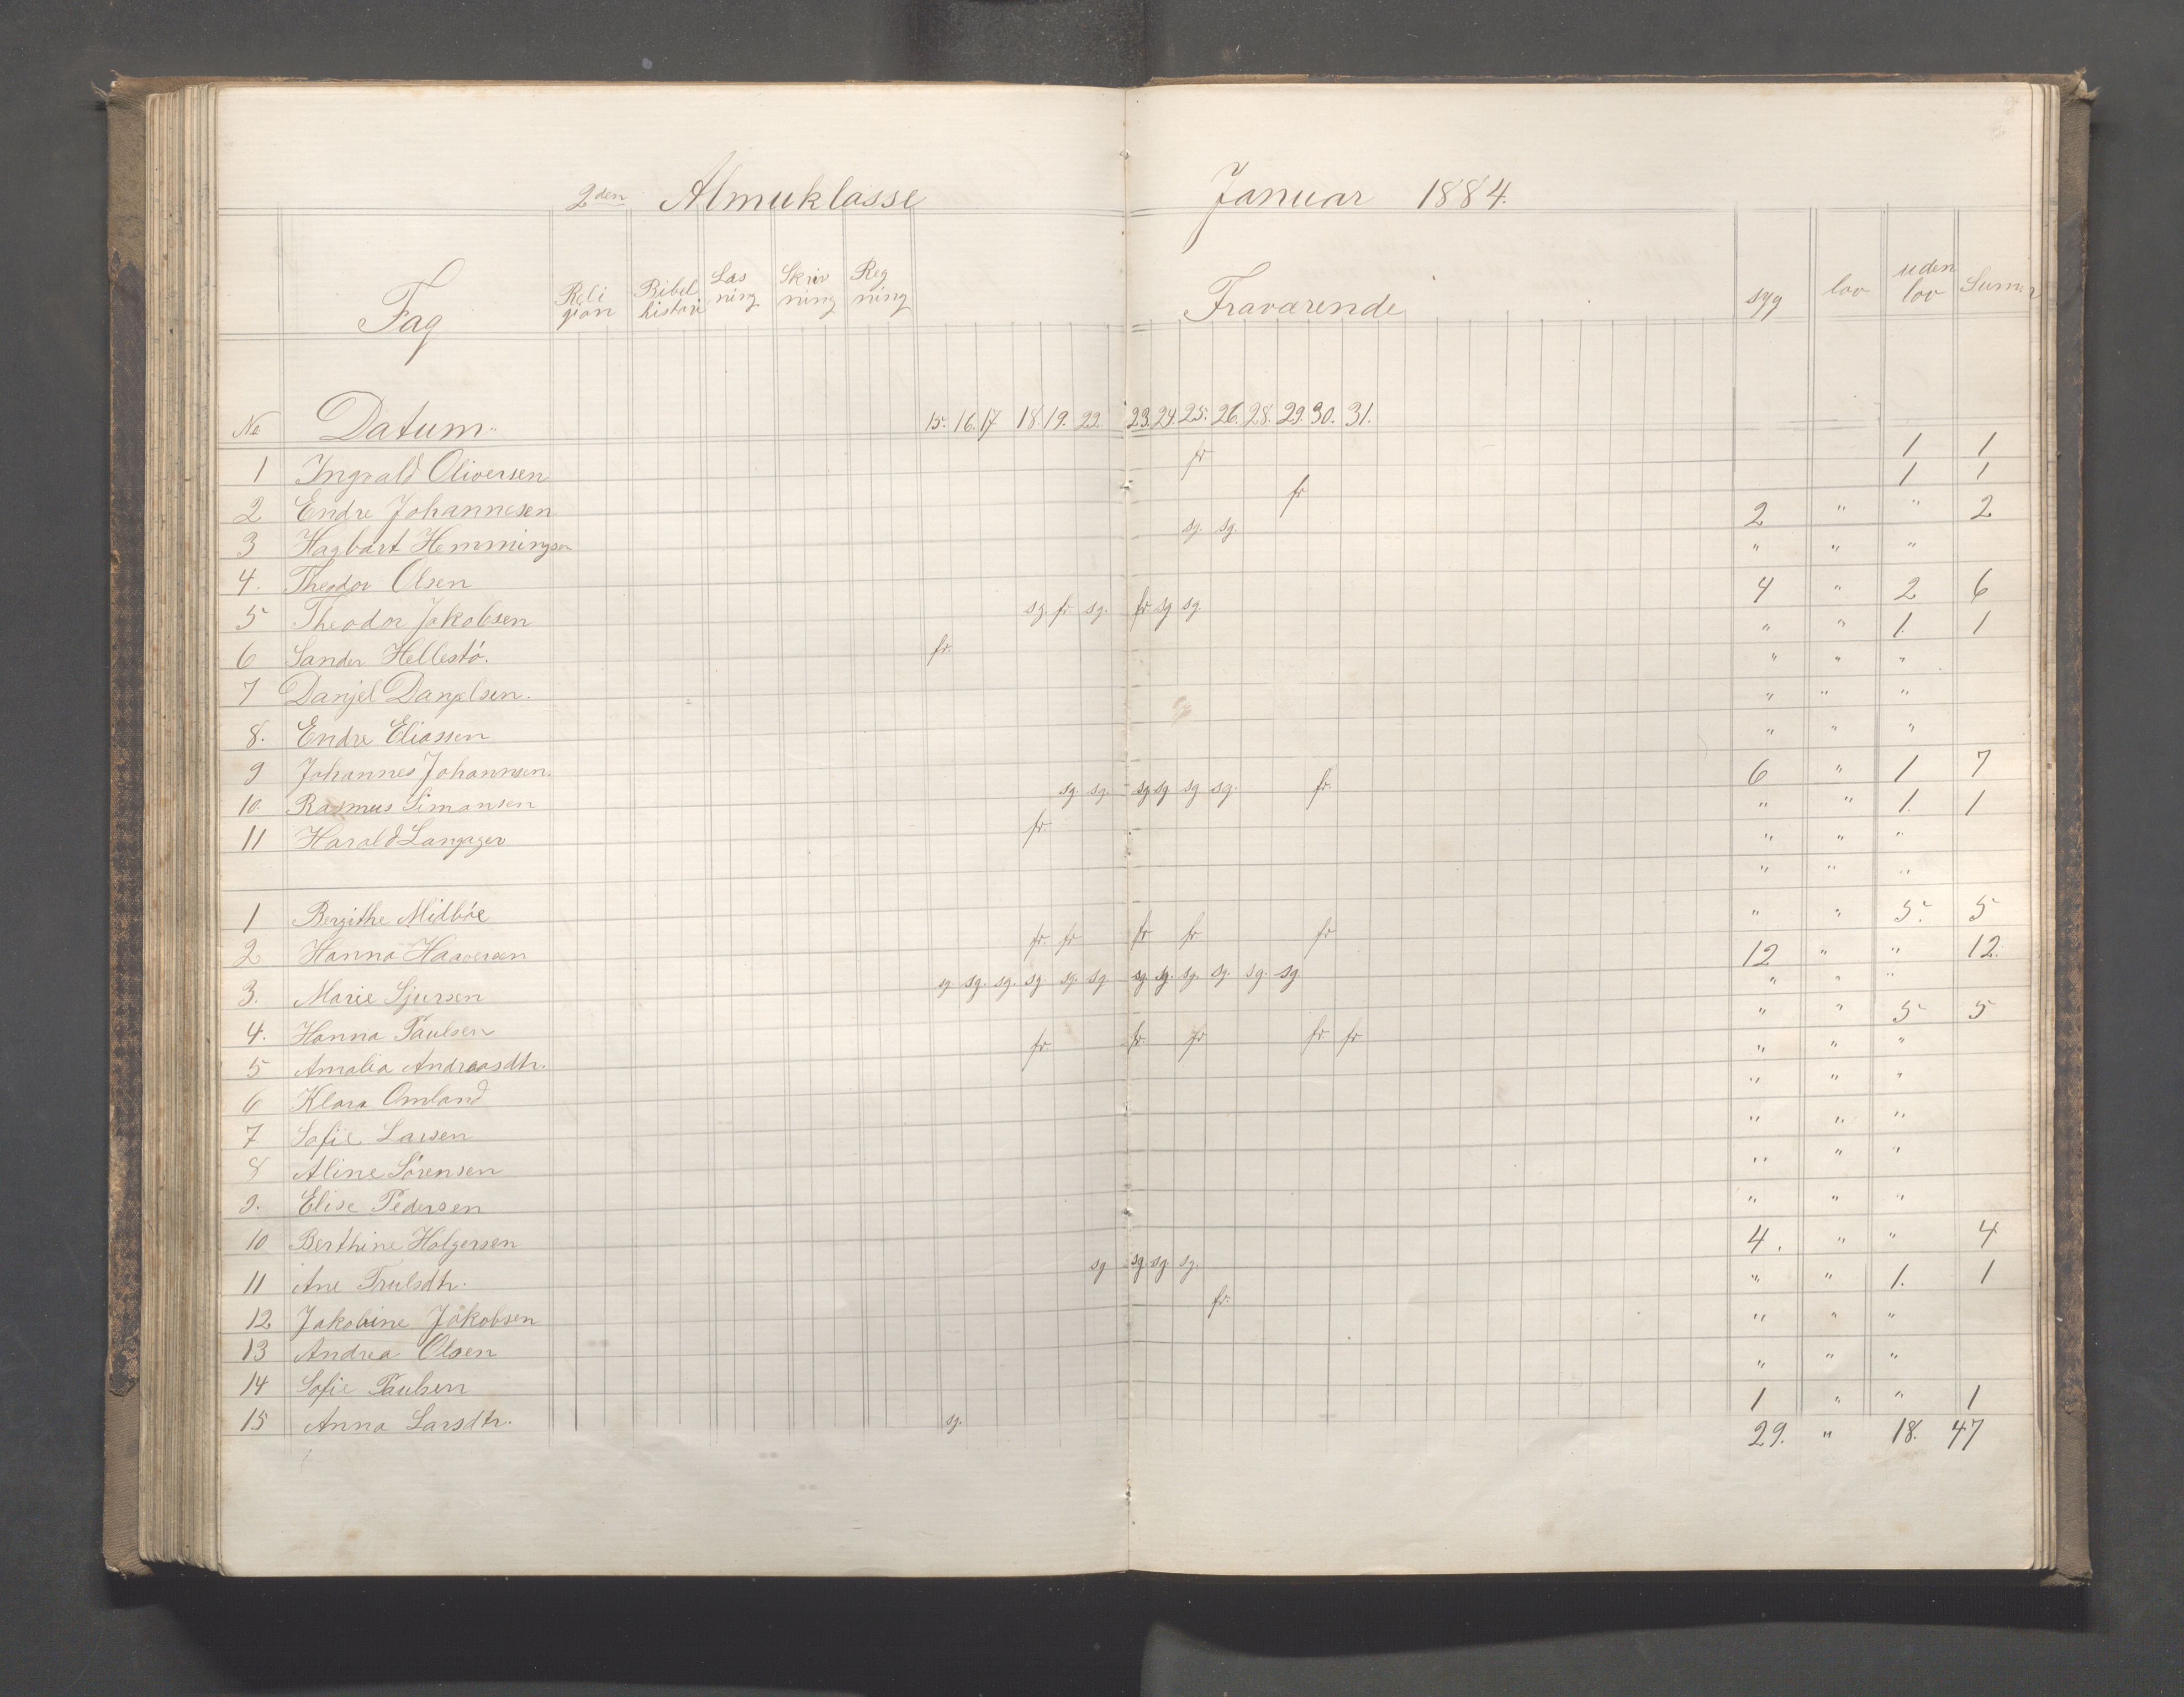 2den Almuklasse Januar 1884.
Fag Religion Bibelhistori Læsning Skrivning Regning Fraværende syg lov uden lov Summa
No Datum 15. 16. 17 18. 19. 22. 23. 24. 25. 26. 28. 29. 30. 31.
1 Ingvald Oliversen fr 1 1
2 Endre Johannesen fr 1 1
3 Hagbart Hemmingsen sg. sg. 2 " " 2
4. Theodor Olsen " " "
5 Theodor Jakobsen sg. fr. sg. fr. sg sg. 4 " 2 6
6 Sander Hellestö. fr. " " 1. 1
7 Danjel Danjelsen. " " "
8. Endre Eliassen " " "
9 Johannes Johannsen. " " "
10. Rasmus Simonsen sg. sg. sg sg sg sg. fr. 6 " 1 7
11 Harald Langager fr. " " 1. 1
" " "
" " "
1 Bergithe Midböe
2 Hanna Haaversen fr. fr fr fr. fr " " 5. 5
3. Marie Sjursen sg sg. sg. sg sg. sg sg. sg. sg. sg. sg. sg. 12 " " 12.
4. Hanna Paulsen " " "
5 Amalia Andreasdtr. fr. fr. fr fr. fr " " 5 5
6 Klara Omland " " "
7 Sofie Larsen " " "
8 Aline Sörensen " " "
9. Elise Pedersen " " "
10 Berthine Holgersen " " "
11 Ane Trulsdtr. sg sg. sg. sg. 4. " " 4
12 Jakobine Jakobsen fr. " " 1. 1
13 Andrea Olsen " " "
14 Sofie Paulsen " " "
15 Anna Larsdtr. sg. 1 " " 1
29. " 18. 47